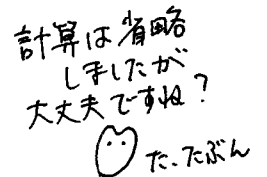 計算は省略
しましたが
大丈夫ですね？
た、たぶん